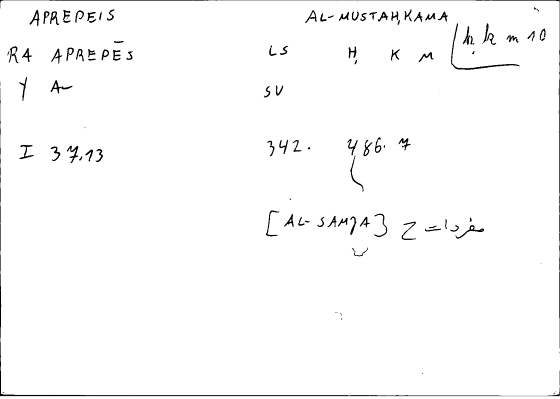 APREPEIS AL-MUSTAḤKAMA
RA APREPĒS LS Ḥ K M ḥ k m 10
Y A~ SV
I 37.13 342. 486. 7
[AL-SAMJA] ح مفردات